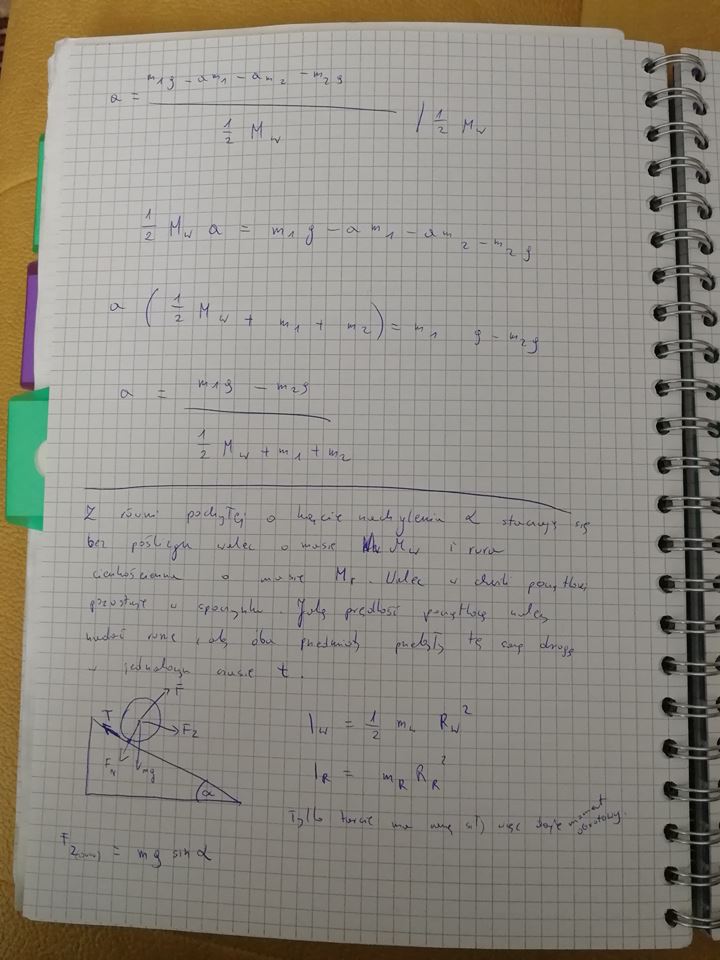 a = m₁g - am₁ - am₂ - m₂g / ½ M_w | ½ M_w
½ M_w a = m₁g - am₁ - am₂ - m₂g
a (½ M_w + m₁ + m₂) = m₁ g - m₂g
a = m₁g - m₂g / ½ M_w + m₁ + m₂
Z równi pochyłej o kącie nachylenia α staczają się
bez poślizgu walec o masie M_w i rura
cienkościenna o masie M_r. Walec w chwili początkowej
pozostaje w spoczynku. Jaką prędkość początkową należy
nadać rurze, aby oba przedmioty przebyły tę samą drogę
w jednakowym czasie t.
T F F_z
F_N mg α
I_w = ½ m_w R_w²
I_R = m_R R_R²
Tylko tarcie ma siły więc daje moment obrotowy.
F = mg sin α